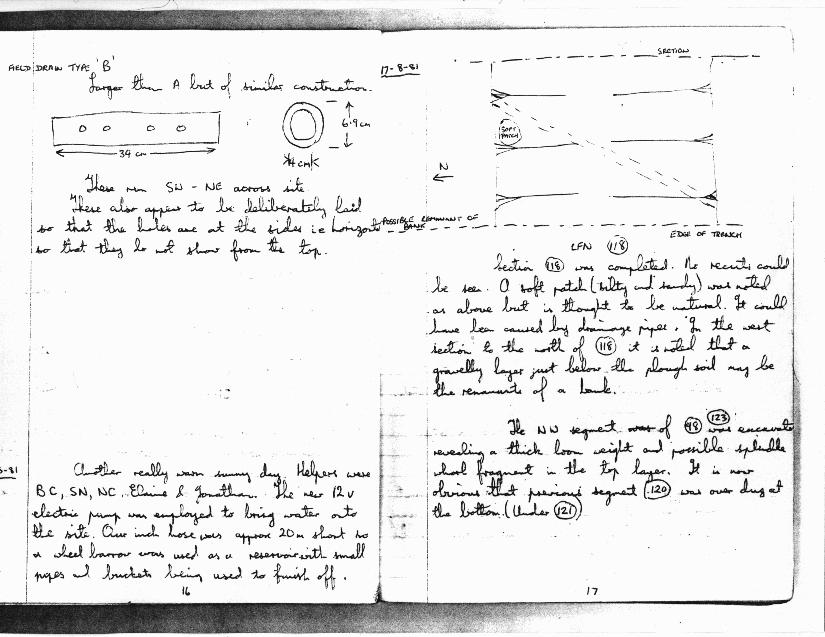 FIELD DRAIN TYPE 'B'
Larger than A but of similar construction.
6.9cm
34 cm
4cm
These run SW - NE across site
These also appear to be deliberately laid
so that the holes are at the sides ie horizontal
so that they do not show from the top.
Another really warm sunny day. Helpers were
BC, SN, NC, Elaine & Jonathan. The new 12v
electric pump was employed to bring water onto
the site. Our inch hose was approx 20m short so
a wheel barrow was used as a reservoir with small
pipes and buckets being used to finish off.
16
17-8-81
SECTION
SOFT
PATCH
N
POSSIBLE REMNANT OF
BANK
EDGE OF TRENCH
LFN 118
Section 118 was completed. No recuts could
be seen. A soft patch (silty and sandy) was noted
as above but is thought to be natural. It could
have been caused by drainage pipes. In the west
section to the north of 118 it is noted that a
gravelly layer just below the plough soil may be
the remnants of a bank.
The NW segment of 98 123 was excavate
revealing a thick loom weight and possible spindle
whorl fragment in the top layer. It is now
obvious that previous segment 120 was over dug at
the bottom. (Under 121)
17